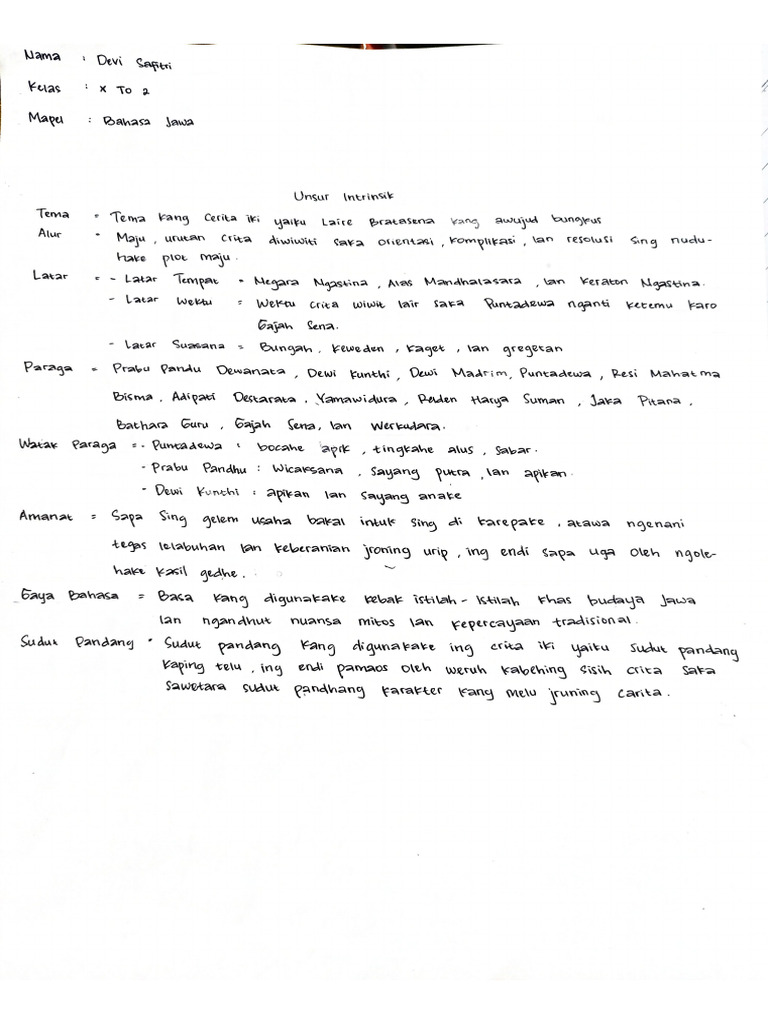 Nama : Devi Safitri
Kelas : X TO 2
Mapel : Bahasa Jawa
Unsur Intrinsik
Tema = Tema kang cerita iki yaiku Laire Bratasena kang awujud bungkus
Alur = Maju, urutan crita diwiwiti saka orientasi, komplikasi, lan resolusi sing nudu-
hake plot maju.
Latar = - Latar Tempat = Negara Ngastina, Alas Mandhalasara, lan Keraton Ngastina.
- Latar Wektu = Wektu crita wiwit lair saka Puntadewa nganti ketemu karo
Gajah Sena.
- Latar Suasana = Bungah, keweden, kaget, lan gregetan
Paraga = Prabu Pandu Dewanata, Dewi Kunthi, Dewi Madrim, Puntadewa, Resi Mahatma
Bisma, Adipati Destarata, Yamawidura, Reden Harya Suman, Jaka Pitana,
Bathara Guru, Gajah Sena, lan Werkudara.
Watak Paraga = - Puntadewa : bocahe apik, tingkahe alus, sabar.
- Prabu Pandhu : Wicaksana, sayang putra, lan apikan.
- Dewi Kunthi : apikan lan sayang anake
Amanat = Sapa sing gelem usaha bakal intuk sing di karepake, atawa ngenani
tegas lelabuhan lan keberanian jroning urip, ing endi sapa uga oleh ngole-
hake kasil gedhe.
Gaya Bahasa = Basa kang digunakake kebak istilah - istilah khas budaya Jawa
lan ngandhut nuansa mitos lan kepercayaan tradisional.
Sudut Pandang = Sudut pandang kang digunakake ing crita iki yaiku sudut pandang
kaping telu, ing endi pamaos oleh weruh kabehing sisih crita saka
sawetara sudut pandhang karakter kang melu jruning carita.